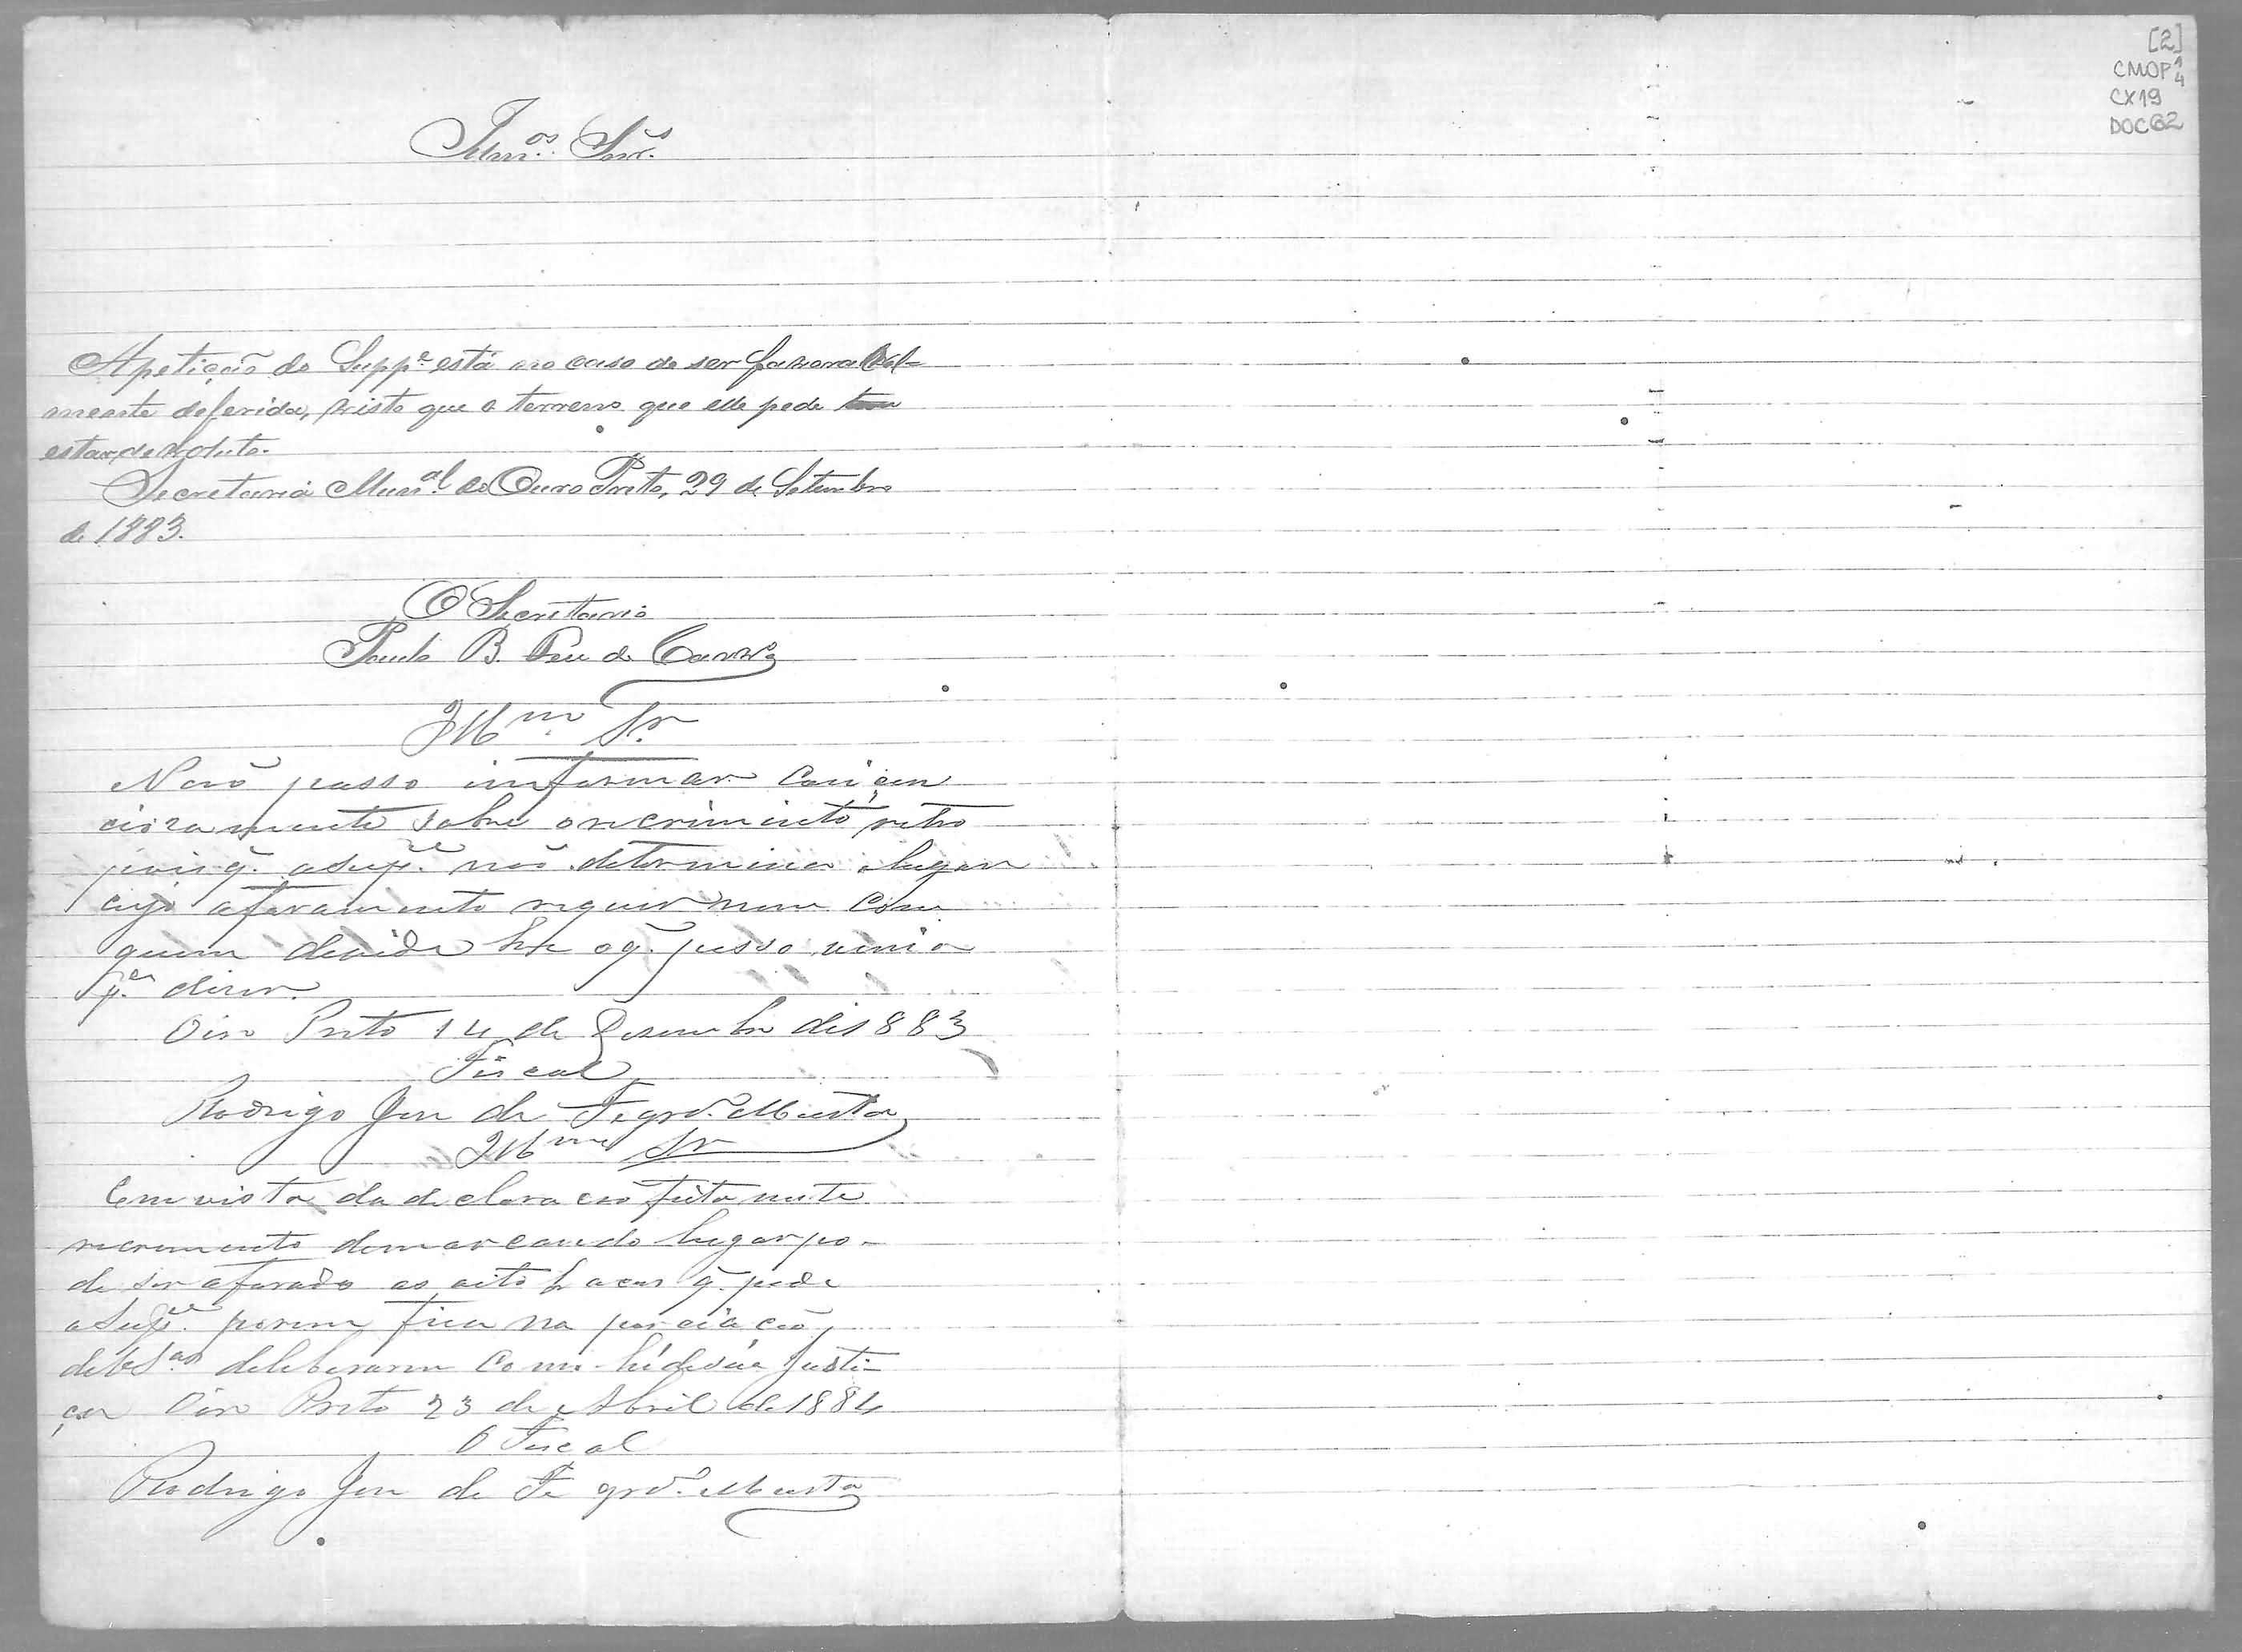 [2]
CMOP 1/4
CX19
DOC62
Illmos. Snrs.
A petição do Suppe. está no caso de ser favoravel-
mente deferida, visto que o terreno que elle pede
estar devoluto.
Secretaria Munal. de Ouro Preto, 29 de Setembro
de 1883.
O Secretario
Paulo B. de Carvo.
Illm. Sr.
Naõ posso informar concien
ciozamente sobre o recrimento retro
pois q. a Supe. naõ determina o lugar
cujo aforamento requer nem com
quem devide he o q. posso
pa. dizer.
Oiro Preto 14 de Dezembro de 1883
Fiscal
Rodrigo Jose de Figrdo. Murta
Illmo Sr
Em vista da declaracaõ feita neste
recrimento demarcando lugar po-
de ser aforado as oito bracas q. pede
a Supe. porem fica na
de VSas deliberarem como he de sua justi-
ça Oiro Preto 23 de Abril de 1884
O Fiscal
Rodrigo Jose de Figrdo. Murta